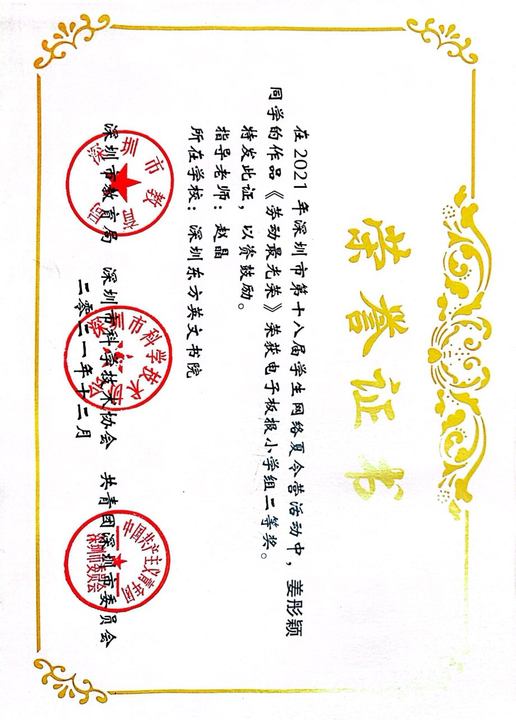 荣誉证书
在2021年深圳市第十八届学生网络夏令营活动中，姜彤颖
同学的作品《劳动最光荣》荣获电子板报小学组二等奖。
特发此证，以资鼓励。
指导老师：赵晶
所在学校：深圳东方英文书院
深圳市教育局 深圳市科学技术协会 共青团深圳市委员会
二零二一年十二月
深圳市教育局
深圳市科学技术协会
中国共产主义青年团
深圳市委员会